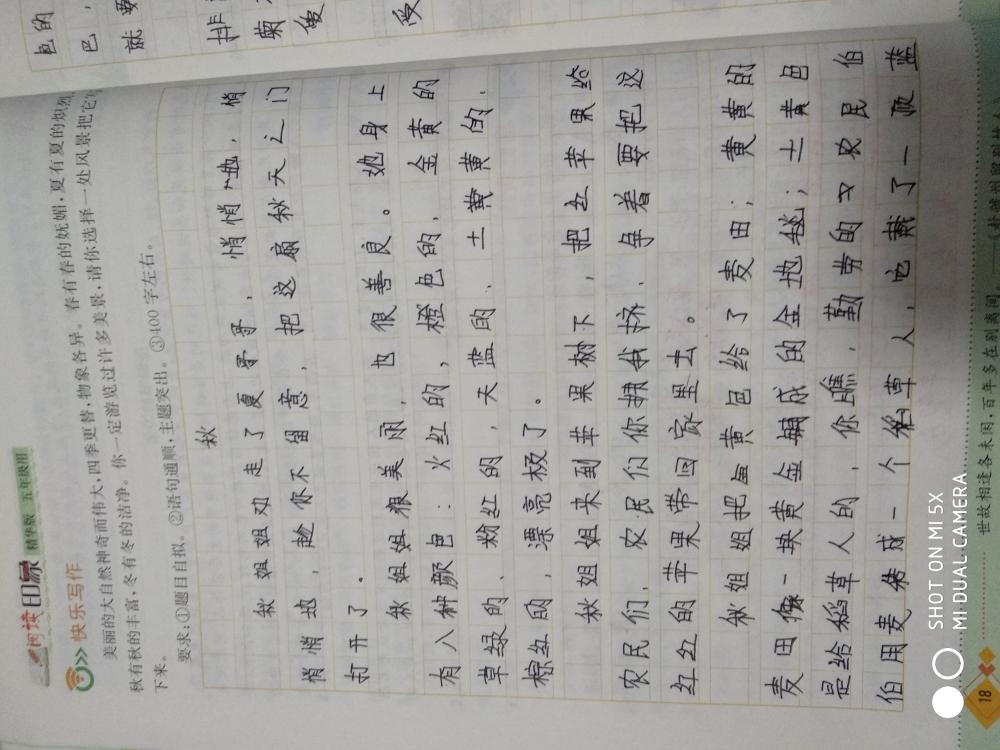 色的
巴，
就 要
排
菊
受
阅读印象 精华版 五年级用
快乐写作
美丽的大自然神奇而伟大，四季更替，物象各异。春有春的妩媚，夏有夏的炽烈，
秋有秋的丰富，冬有冬的洁净。你一定游览过许多美景，请你选择一处风景把它写
下来。
要求：①题目自拟。②语句通顺，主题突出。③400字左右。
秋
秋姐姐劝走了夏哥哥，悄悄地，悄
悄悄地，趁你不留意，把这扇秋天之门
打开了。
秋姐姐很美丽，也很善良。她身上
有八种颜色：火红的，橙色的，金黄的
草绿的、粉红的，天蓝的、土黄的、
棕红的，漂亮极了。
秋姐姐来到苹果树下，把红苹果给
农民们，农民们你拥我挤，争着要把这
红红的苹果带回家里去。
秋姐姐把金黄包给了麦田；黄黄的
麦田像一块黄金铺成的金地毯；土黄色
是给稻草人的，你瞧，勤劳的农民伯
伯用麦 成一个 草人，它戴了一顶蓝
18
世故相逢各未闲，百年多在别离间。
SHOT ON MI 5X
MI DUAL CAMERA